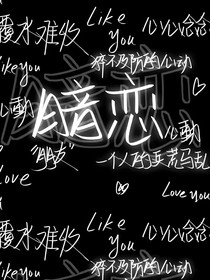 Like
You
心心念念
覆水难收
猝不及防的心动
Like you
暗恋
心動
"朋友"
一个人的兵荒马乱
Love
Love you
Like
You
心心念念
覆水难收
猝不及防的心动